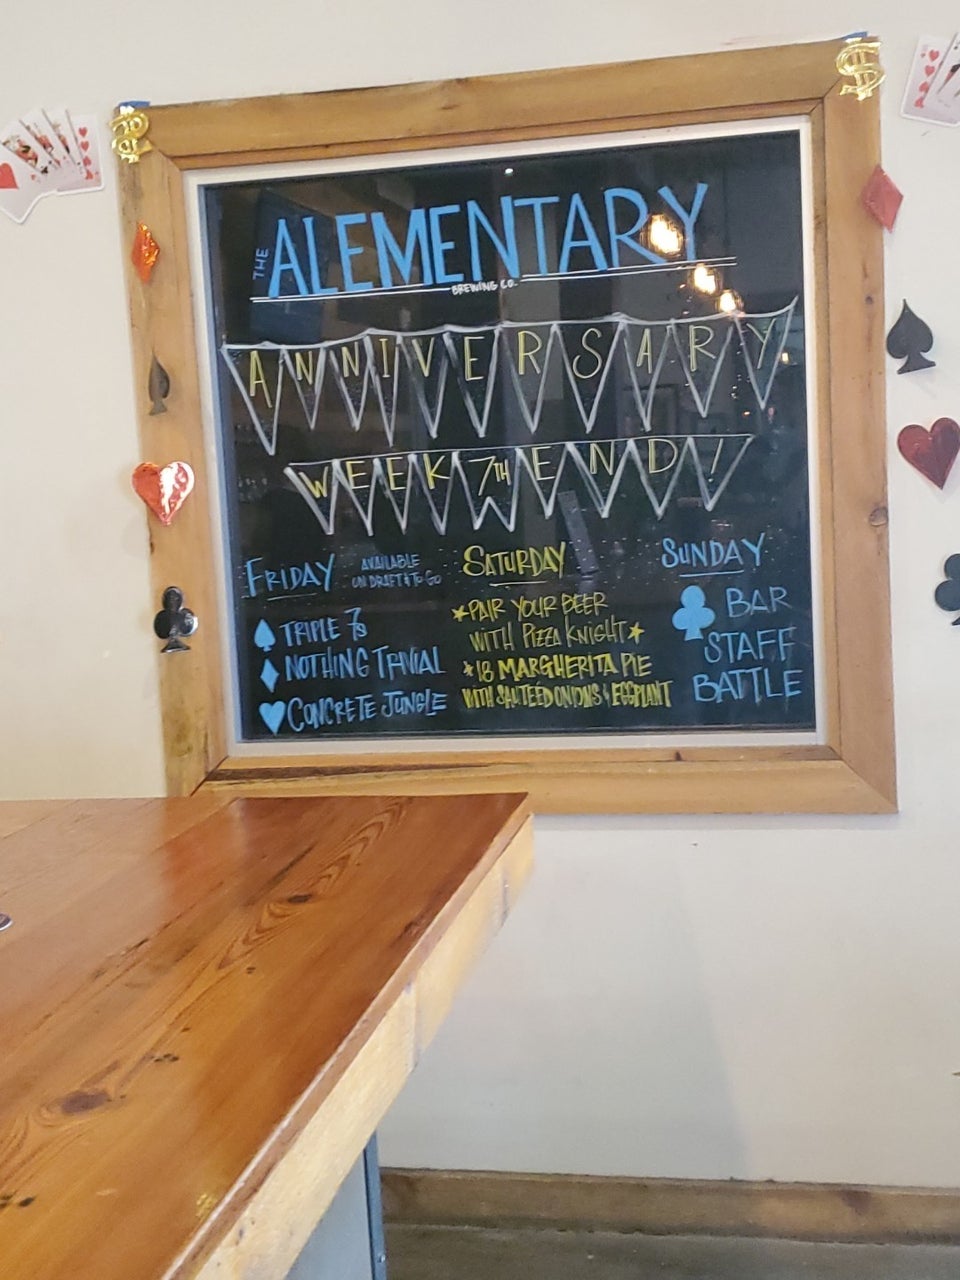 THE ALEMENTARY
BREWING CO.
ANNIVERSARY
WEEK 7TH END!
FRIDAY
AVAILABLE
ON DRAFT & TO GO
TRIPLE 7s
NOTHING TRIVIAL
CONCRETE JUNGLE
SATURDAY
PAIR YOUR BEER
WITH PIZZA KNIGHT
18 MARGHERITA PIE
WITH SAUTEED ONIONS & EGGPLANT
SUNDAY
BAR
STAFF
BATTLE